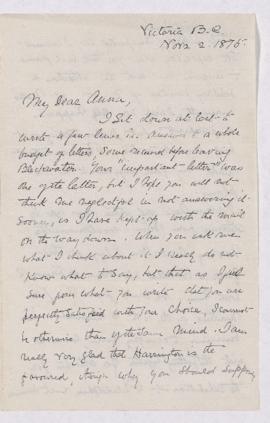 Victoria B.C
Novr 2. 1875.
My Dear Anna,
I Sit down at last to
write a few lines in answer to a whole
budget of letters some received before leaving
Blackwater. Your "important letter" was
one of the letter, but I hope you will not
think me neglectful in not answering it
sooner, as I have kept up with the mail
on the way down. When you ask me
what I think about it I really do not
know what to say, but that as I feel
sure from what you write that you are
perfectly satisfied with your choice, I cannot
be otherwise than of the same mind. I am
really very glad that Harrington is the
favoured, though why you should suppose